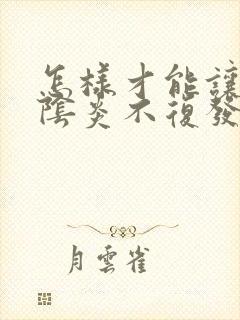 怎樣才能讓
陰炎不復發
月雲雀